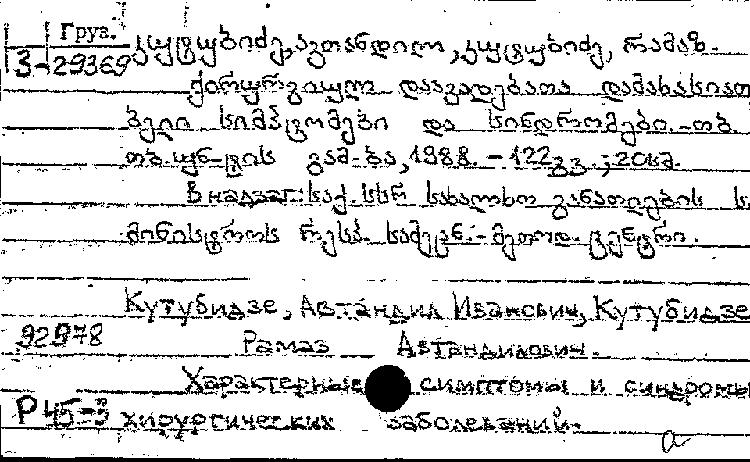 Груз.
3-29369 კუტუბიძე, ავთანდილ, კუტუბიძე, რამაზ.
ქირურგიულ დაავადებათა დამახასიათ
ბელი სიმპტომები და სინდრომები.-თბ.:
თბ. უნ-ტის გამ-ბა, 1988. - 122 გვ.; 20 სმ.
В надзаг.: საქ. სსრ სახალხო განათლების ს.
მინისტროს რესპ. სამეცნ.-მეთოდ. ცენტრი.
Кутубидзе, Автандил Иванович, Кутубидзе
92978 Рамаз Автандилович.
Характерные симптомы и синдромы
Р 45-3 хирургических заболеваний.